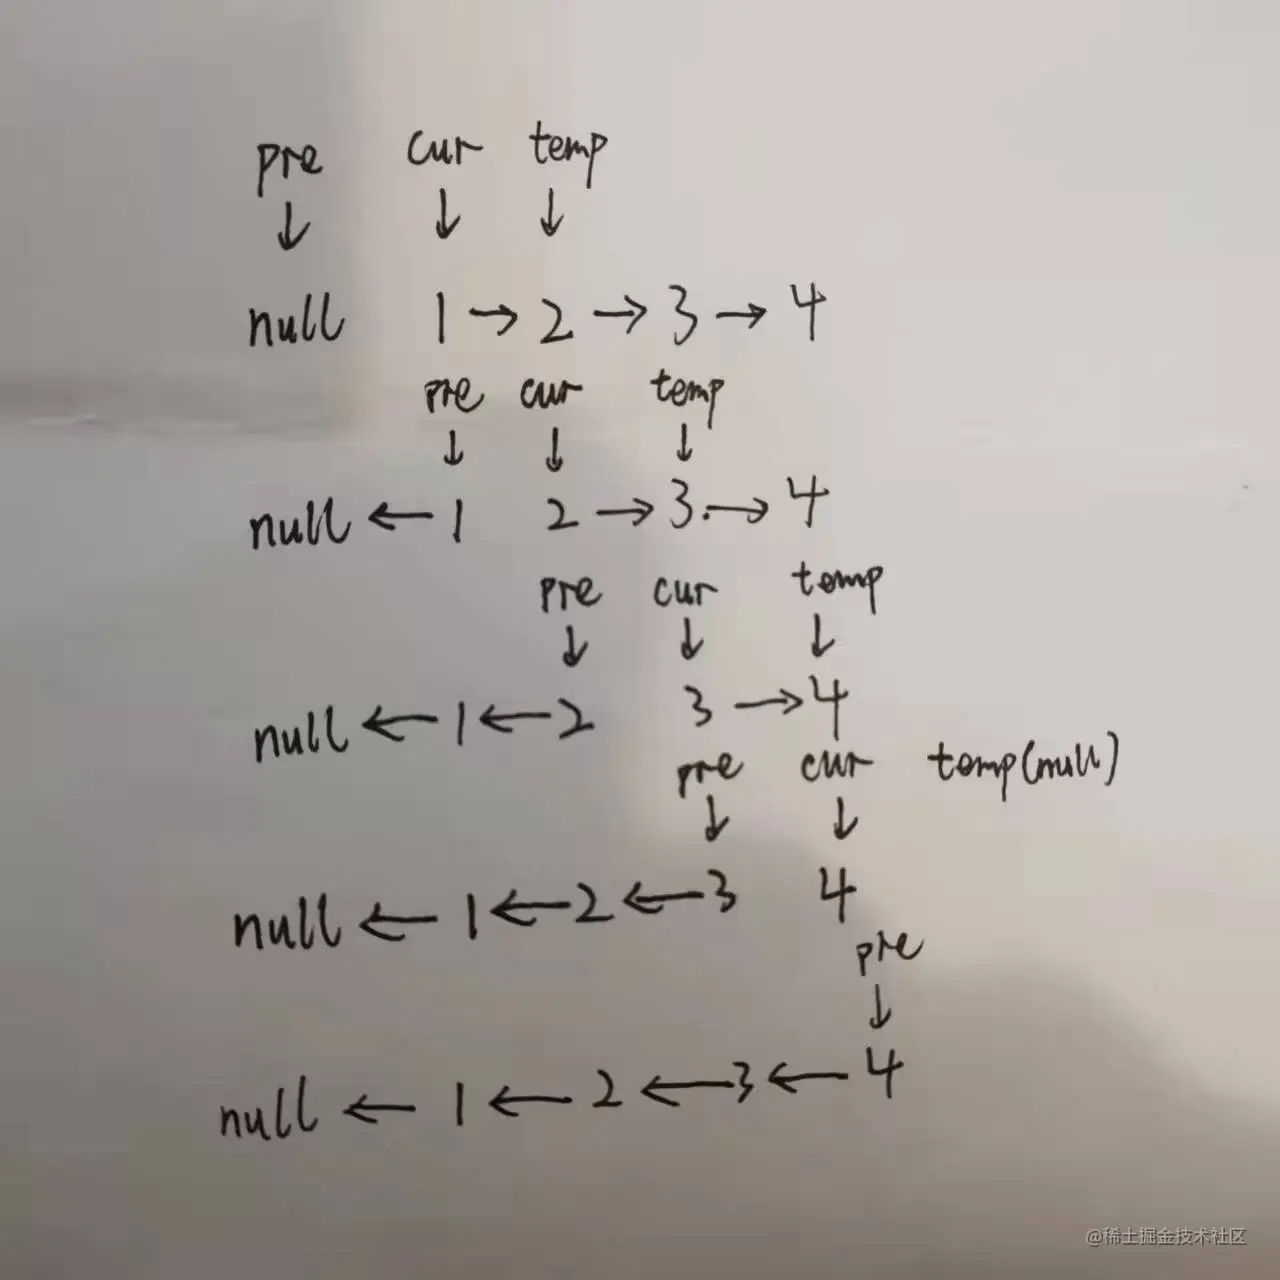 pre cur temp
↓ ↓ ↓
null 1 → 2 → 3 → 4
pre cur temp
↓ ↓ ↓
null ← 1 2 → 3 → 4
pre cur temp
↓ ↓ ↓
null ← 1 ← 2 3 → 4
pre cur temp(null)
↓ ↓
null ← 1 ← 2 ← 3 4
pre
↓
null ← 1 ← 2 ← 3 ← 4
@稀土掘金技术社区